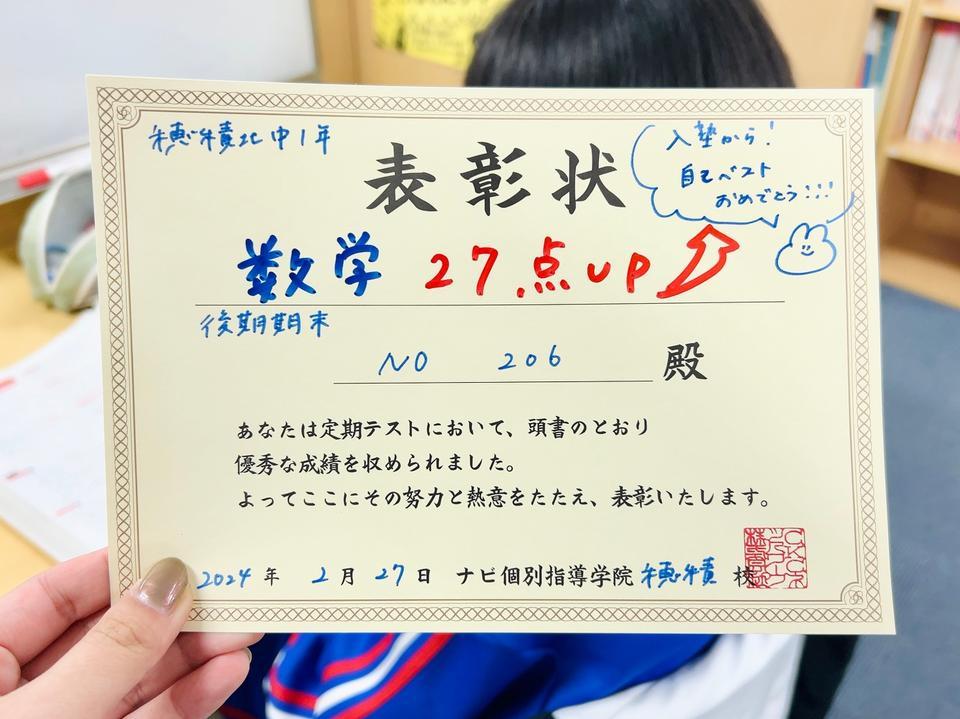 穂積北中1年
表彰状
入塾から!
自己ベスト
おめでとう!!!
数学 27点UP
後期期末
NO 206 殿
あなたは定期テストにおいて、頭書のとおり
優秀な成績を収められました。
よってここにその努力と熱意をたたえ、表彰いたします。
2024年 2月27日 ナビ個別指導学院 穂積 校